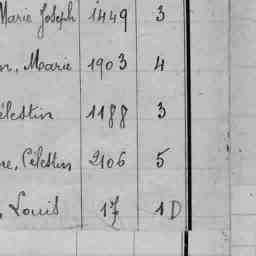 Marie Joseph 1449 3
n, Marie 1903 4
élestin 1188 3
ne, Célestin 2106 5
, Louis 17 1 D